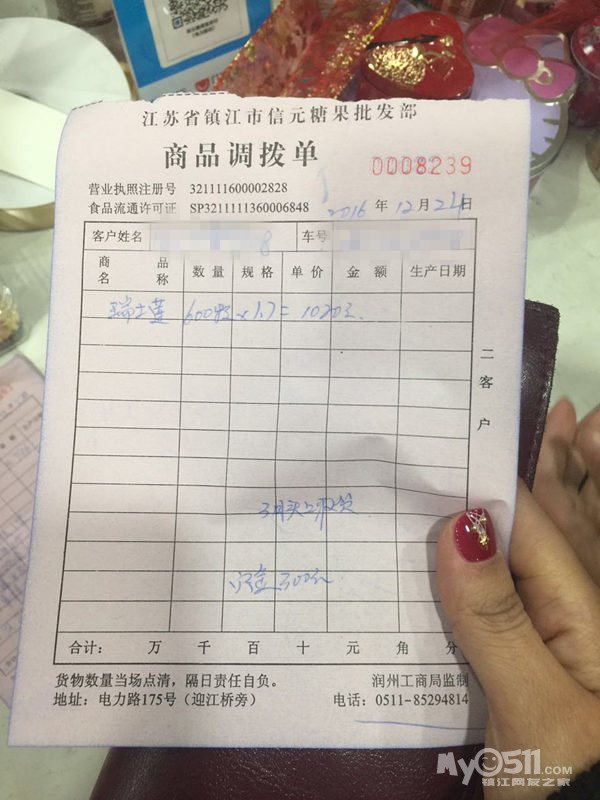 江苏省镇江市信元糖果批发部
商品调拨单
0008239
营业执照注册号 321111600002828
食品流通许可证 SP3211111360006848
2016 年 12 月 24 日
客户姓名 8 车号
商品名称 数量 规格 单价 金额 生产日期
瑞士莲 600颗 x1.7= 1020元
二客户
3月头上取货
定金 300元
合计: 万 千 百 十 元 角 分
货物数量当场点清，隔日责任自负。 润州工商局监制
地址: 电力路175号（迎江桥旁） 电话: 0511-85294814
My0511.COM
镇江网友之家